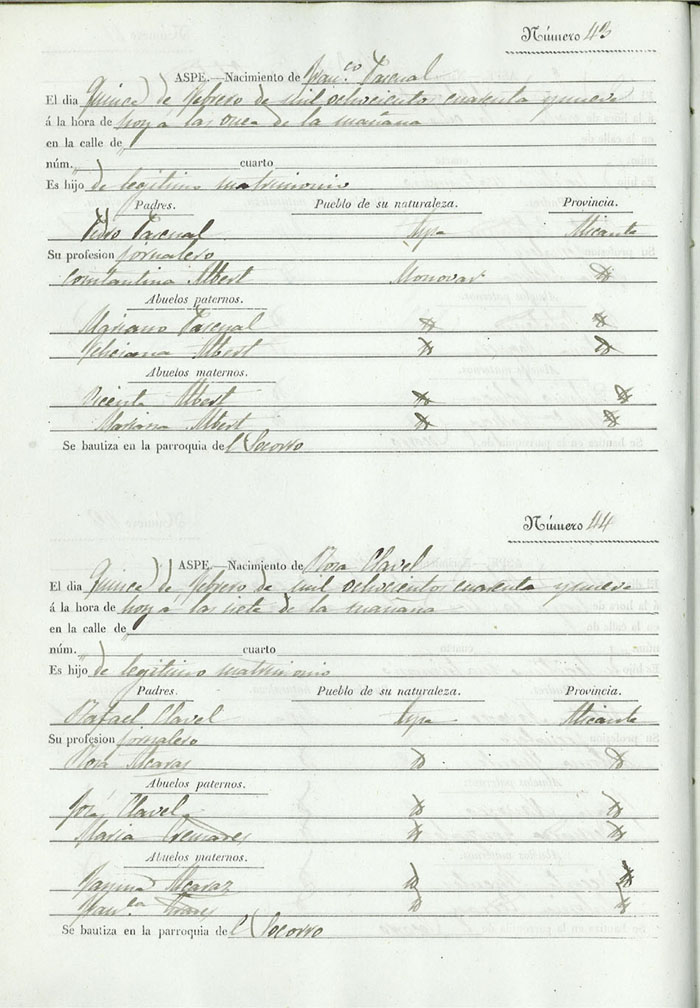 Número 43
ASPE.—Nacimiento de Fran.co Pascual
El dia Quince de febrero de mil ochocientos cuarenta y nueve
á la hora de hoy a las once de la mañana
en la calle de
núm. cuarto
Es hijo de legitimo matrimonio
Padres. Pueblo de su naturaleza. Provincia.
Pedro Pascual Aspe Alicante
Su profesion jornalero
Constantina Albert Monovar
Abuelos paternos.
Mariano Pascual
Feliciana Albert
Abuelos maternos.
Vicente Albert
Mariana Albert
Se bautiza en la parroquia del Socorro
Número 44
ASPE.—Nacimiento de Rosa Clavel
El dia Quince de febrero de mil ochocientos cuarenta y nueve
á la hora de hoy a las siete de la mañana
en la calle de
núm. cuarto
Es hijo de legitimo matrimonio
Padres. Pueblo de su naturaleza. Provincia.
Rafael Clavel Aspe Alicante
Su profesion jornalero
Rosa Alcaraz
Abuelos paternos.
José Clavel
Maria
Abuelos maternos.
Alcaraz
Se bautiza en la parroquia del Socorro